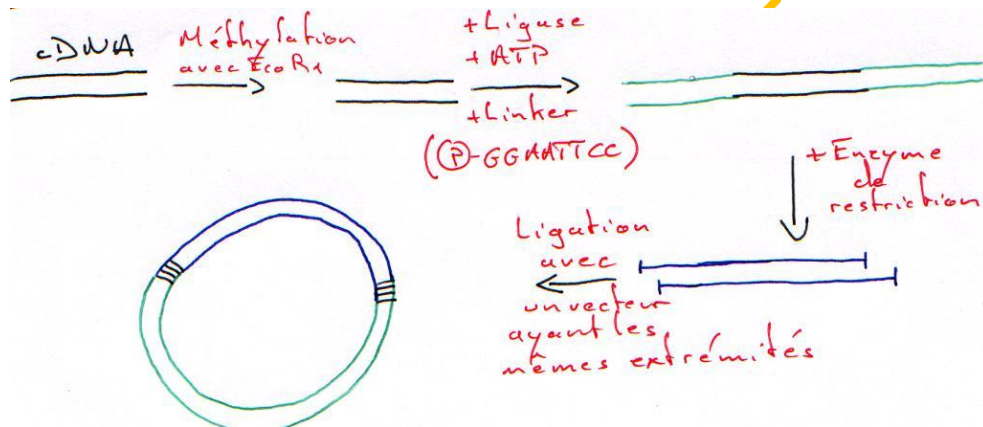 cDNA
Méthylation
avec EcoR1
+Ligase
+ATP
+Linker
(P-GGAATTCC)
+Enzyme
de
restriction
Ligation
avec
un vecteur
ayant les
mêmes extrémités